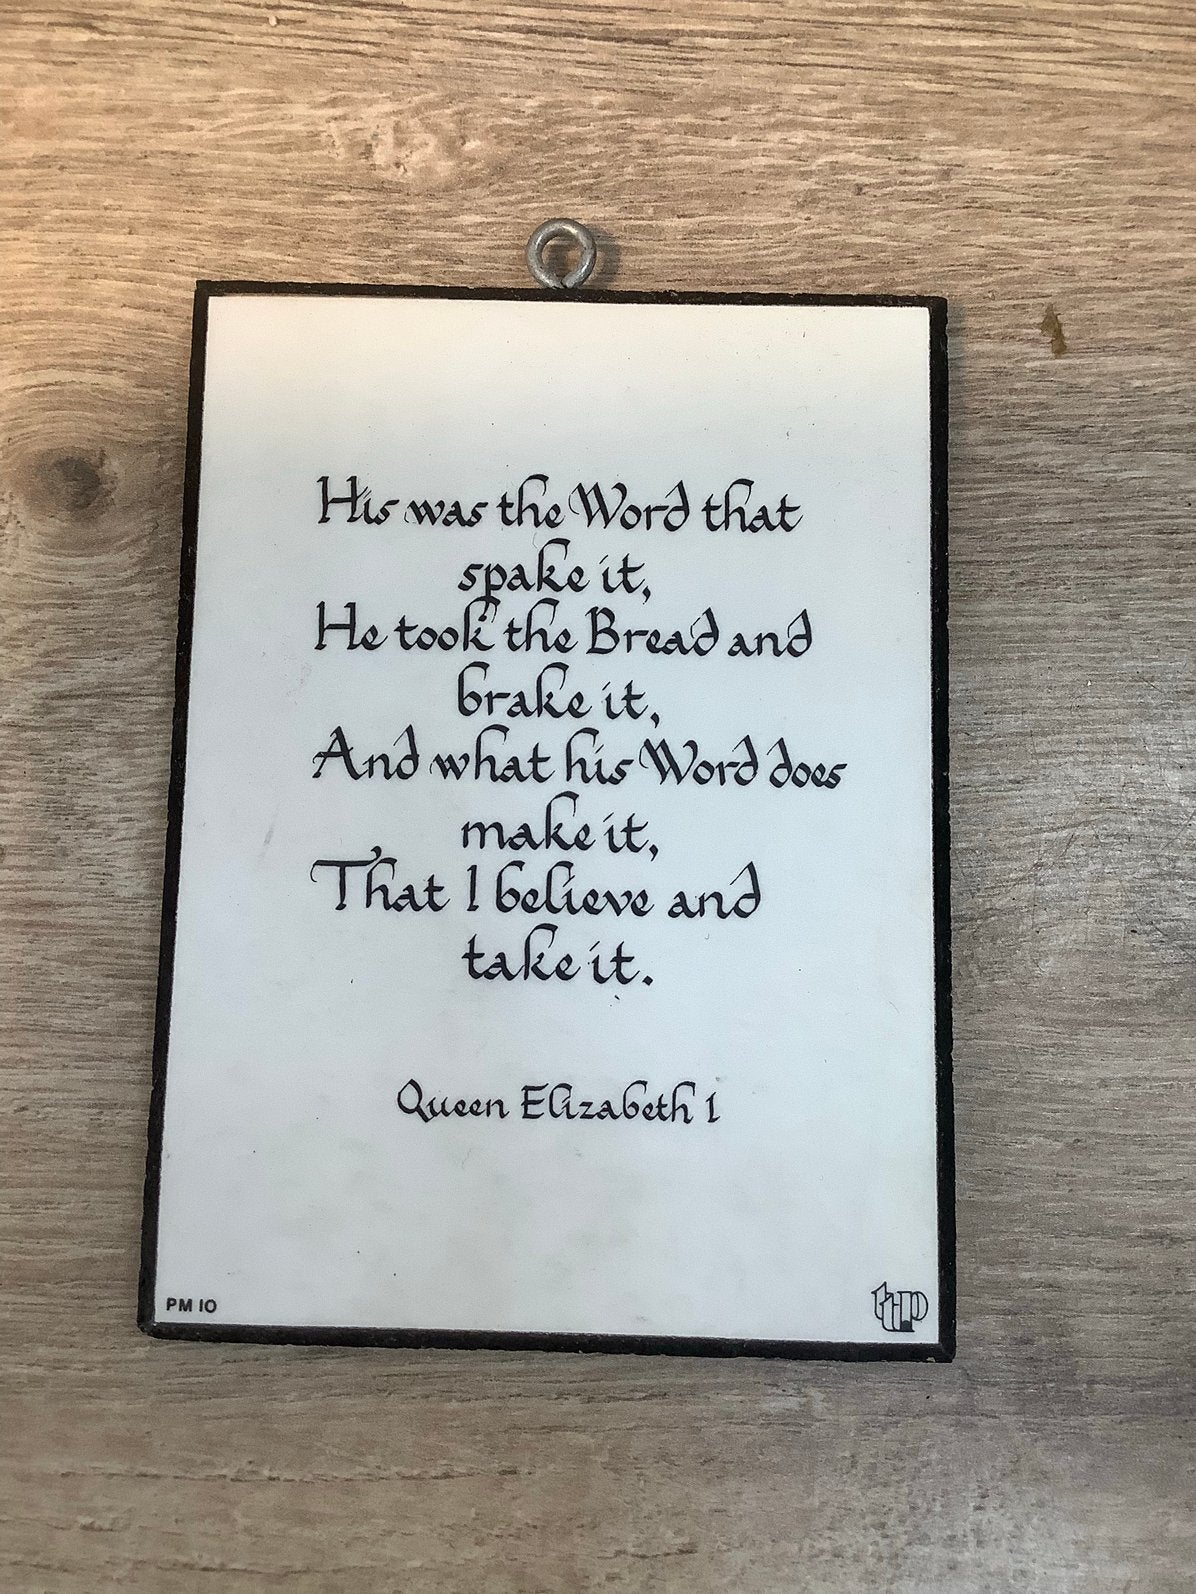 His was the Word that
spake it,
He took the Bread and
brake it,
And what his Word does
make it,
That I believe and
take it.
Queen Elizabeth 1
PM 10